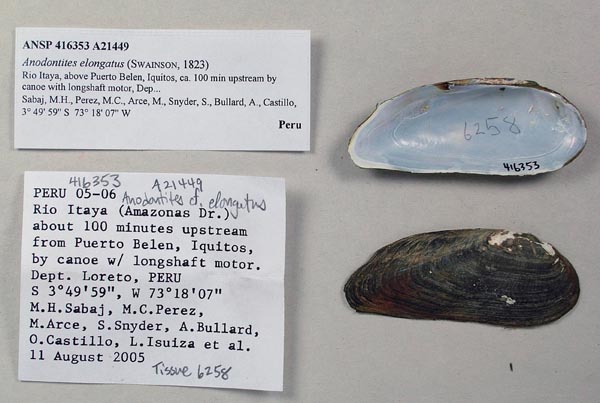 ANSP 416353 A21449
Anodontites elongatus (SWAINSON, 1823)
Rio Itaya, above Puerto Belen, Iquitos, ca. 100 min upstream by
canoe with longshaft motor, Dep...
Sabaj, M.H., Perez, M.C., Arce, M., Snyder, S., Bullard, A., Castillo,
3° 49' 59" S  73° 18' 07" W
Peru
416353 A21449
PERU 05-06 Anodontites cf. elongatus
Rio Itaya (Amazonas Dr.)
about 100 minutes upstream
from Puerto Belen, Iquitos,
by canoe w/ longshaft motor.
Dept. Loreto, PERU
S 3°49'59", W 73°18'07"
M.H.Sabaj, M.C.Perez,
M.Arce, S.Snyder, A.Bullard,
O.Castillo, L.Isuiza et al.
11 August 2005
Tissue 6258
6258
416353